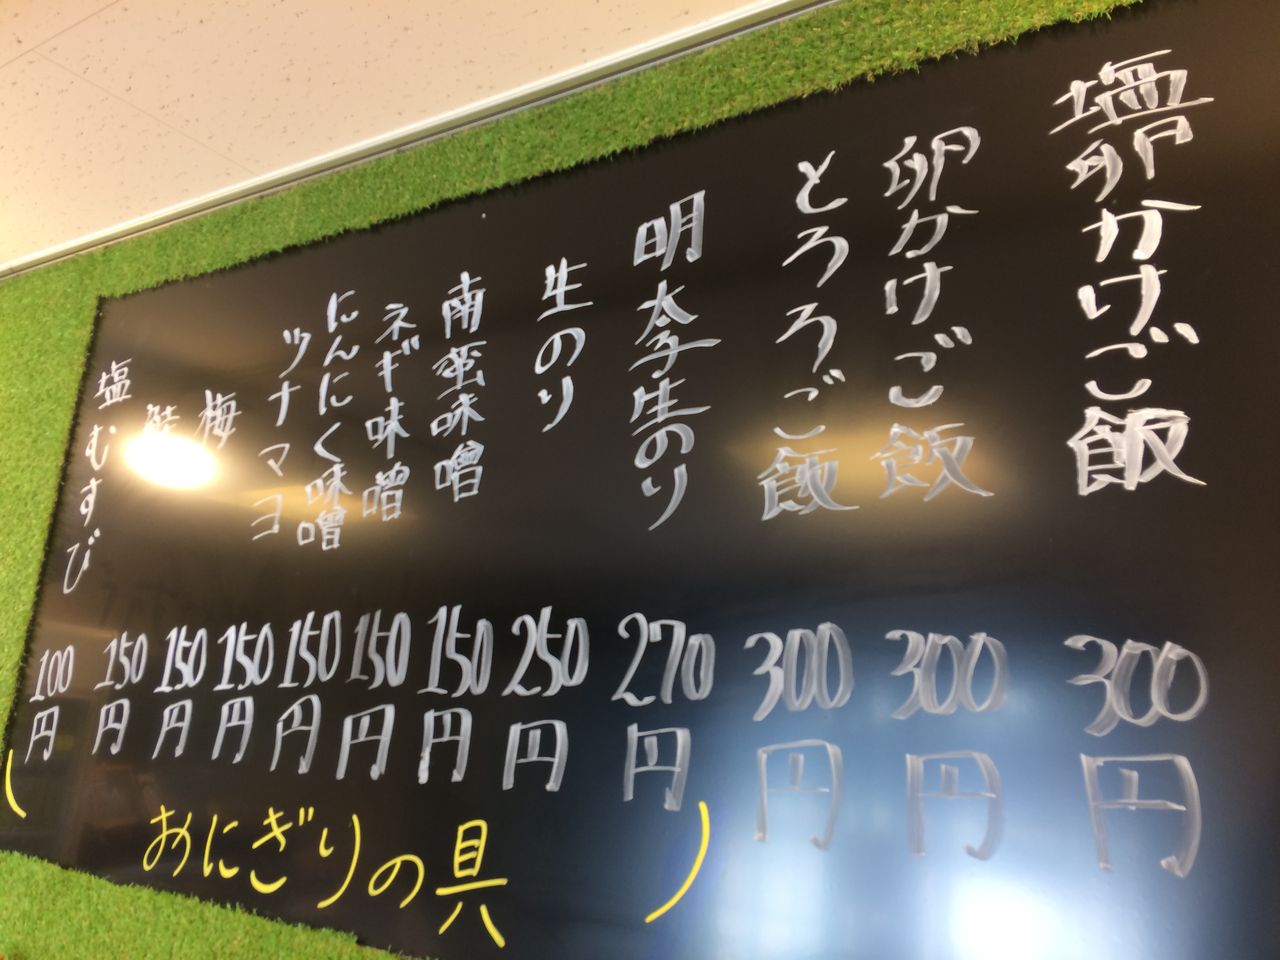 塩卵かけご飯 300円
卵かけご飯 300円
とろろご飯 300円
明太子生のり 270円
生のり 250円
南蛮味噌 150円
ネギ味噌 150円
にんにく味噌 150円
ツナマヨ 150円
梅 150円
鮭 150円
塩むすび 100円
(おにぎりの具)